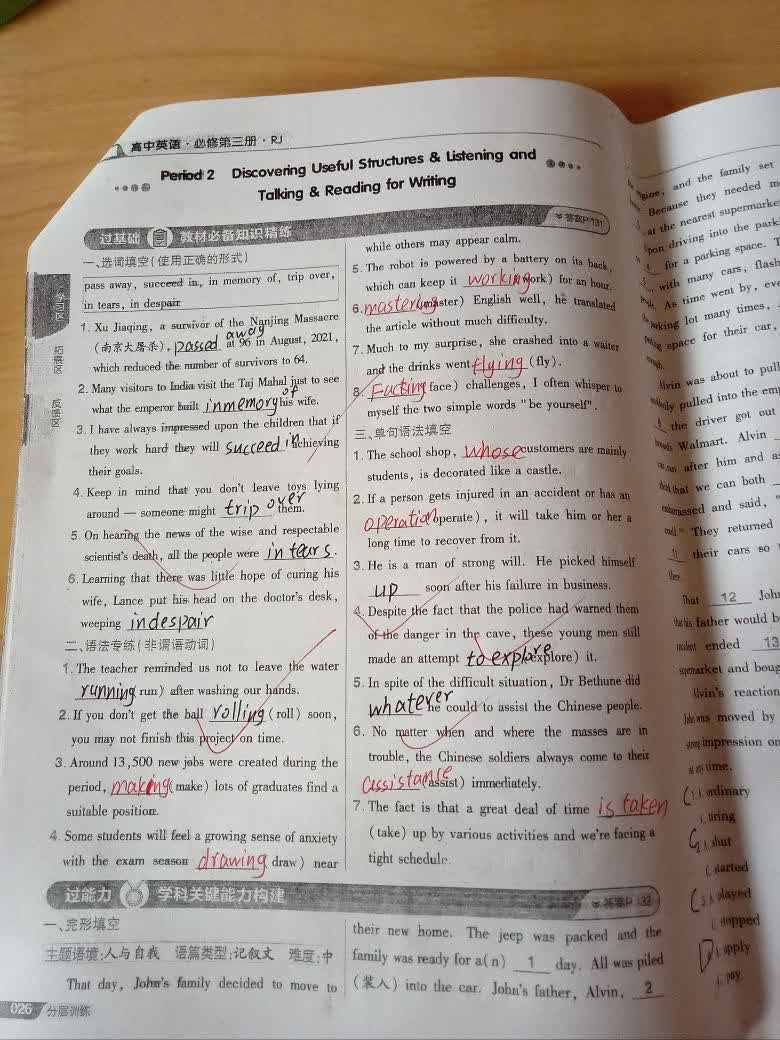 高中英语·必修第三册·RJ
Period 2 Discovering Useful Structures & Listening and
Talking & Reading for Writing
过基础 教材必备知识精练
答案P131
一、选词填空(使用正确的形式)
pass away, succeed in, in memory of, trip over,
in tears, in despair
1. Xu Jiaqing, a survivor of the Nanjing Massacre
(南京大屠杀), passed away at 96 in August, 2021,
which reduced the number of survivors to 64.
2. Many visitors to India visit the Taj Mahal just to see
what the emperor built in memory of his wife.
3. I have always impressed upon the children that if
they work hard they will succeed in achieving
their goals.
4. Keep in mind that you don't leave toys lying
around — someone might trip over them.
5. On hearing the news of the wise and respectable
scientist's death, all the people were in tears.
6. Learning that there was little hope of curing his
wife, Lance put his head on the doctor's desk,
weeping in despair
二、语法专练(非谓语动词)
1. The teacher reminded us not to leave the water
running (run) after washing our hands.
2. If you don't get the ball rolling (roll) soon,
you may not finish this project on time.
3. Around 13,500 new jobs were created during the
period, making (make) lots of graduates find a
suitable position.
4. Some students will feel a growing sense of anxiety
with the exam season drawing draw) near
while others may appear calm.
5. The robot is powered by a battery on its back,
which can keep it working (work) for an hour.
6. mastering (master) English well, he translated
the article without much difficulty.
7. Much to my surprise, she crashed into a waiter
and the drinks went flying (fly).
8. Facting face) challenges, I often whisper to
myself the two simple words "be yourself".
三、单句语法填空
1. The school shop, whose customers are mainly
students, is decorated like a castle.
2. If a person gets injured in an accident or has an
operation operate), it will take him or her a
long time to recover from it.
3. He is a man of strong will. He picked himself
up soon after his failure in business.
4. Despite the fact that the police had warned them
of the danger in the cave, these young men still
made an attempt to explore (explore) it.
5. In spite of the difficult situation, Dr Bethune did
whatever he could to assist the Chinese people.
6. No matter when and where the masses are in
trouble, the Chinese soldiers always come to their
assistance (assist) immediately.
7. The fact is that a great deal of time is taken
(take) up by various activities and we're facing a
tight schedule.
过能力 学科关键能力构建
答案P132
一、完形填空
主题语境:人与自我 语篇类型:记叙文 难度:中
That day, John's family decided to move to
their new home. The jeep was packed and the
family was ready for a(n) 1 day. All was piled
(装入) into the car. John's father, Alvin, 2
026 分层训练
学习区
拓展区
反馈区
and the family set
Because they needed
at the nearest supermarke
upon driving into the park
for a parking space.
with many cars, flash
As time went by, eve
parking lot many times,
space for their car,
Alvin was about to pull
pulled into the emp
the driver got out
Walmart. Alvin
after him and as
that we can both
and said,
They returned
11 their cars so
That 12 John
his father would b
ended 13
supermarket and boug
Alvin's reaction
John was moved by
strong impression on
time.
ordinary
tiring
shut
started
played
stopped
apply
pay